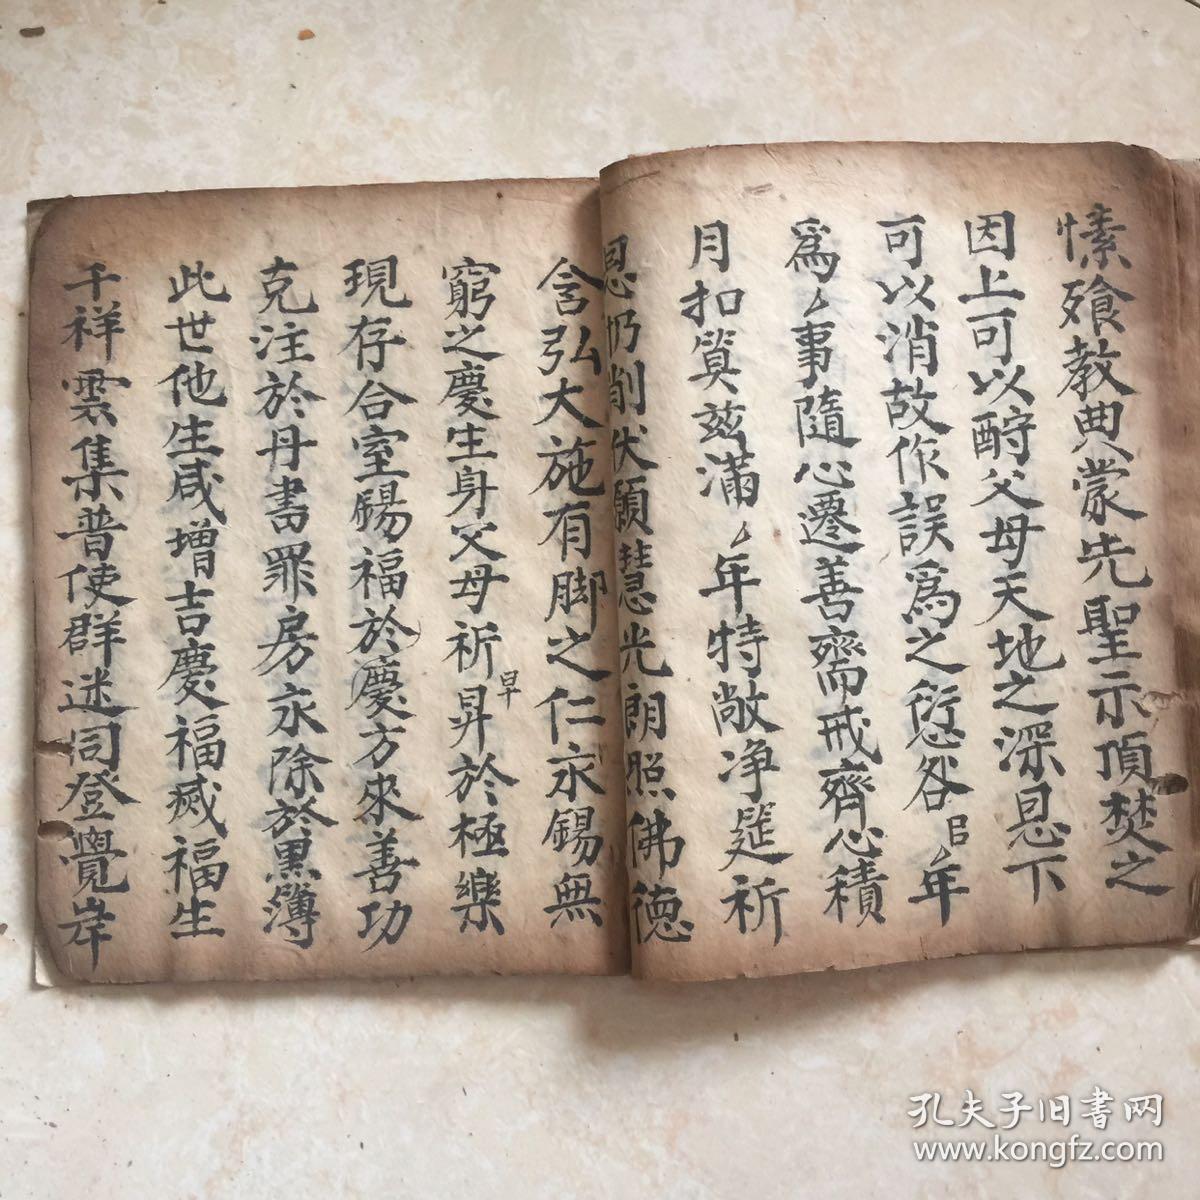 愫飱教典蒙先聖示頂焚之
因上可以酧父母天地之深恩下
可以消故作誤爲之愆咎日𠄌年
爲𠄌事隨心遷善齋而戒齊心積
月扣筭兹滿𠄌年特敞净筵祈
恩扔削伏願慧光朗照佛德
含弘大施有脚之仁永錫無
窮之慶生身父母祈早昇於極樂
現存合室錫福於慶方來善功
克注於丹書罪房永除於黒簿
此世他生咸增吉慶福烕福生
千祥雲集普使群迷同登覺岸
孔夫子旧書网
www.kongfz.com